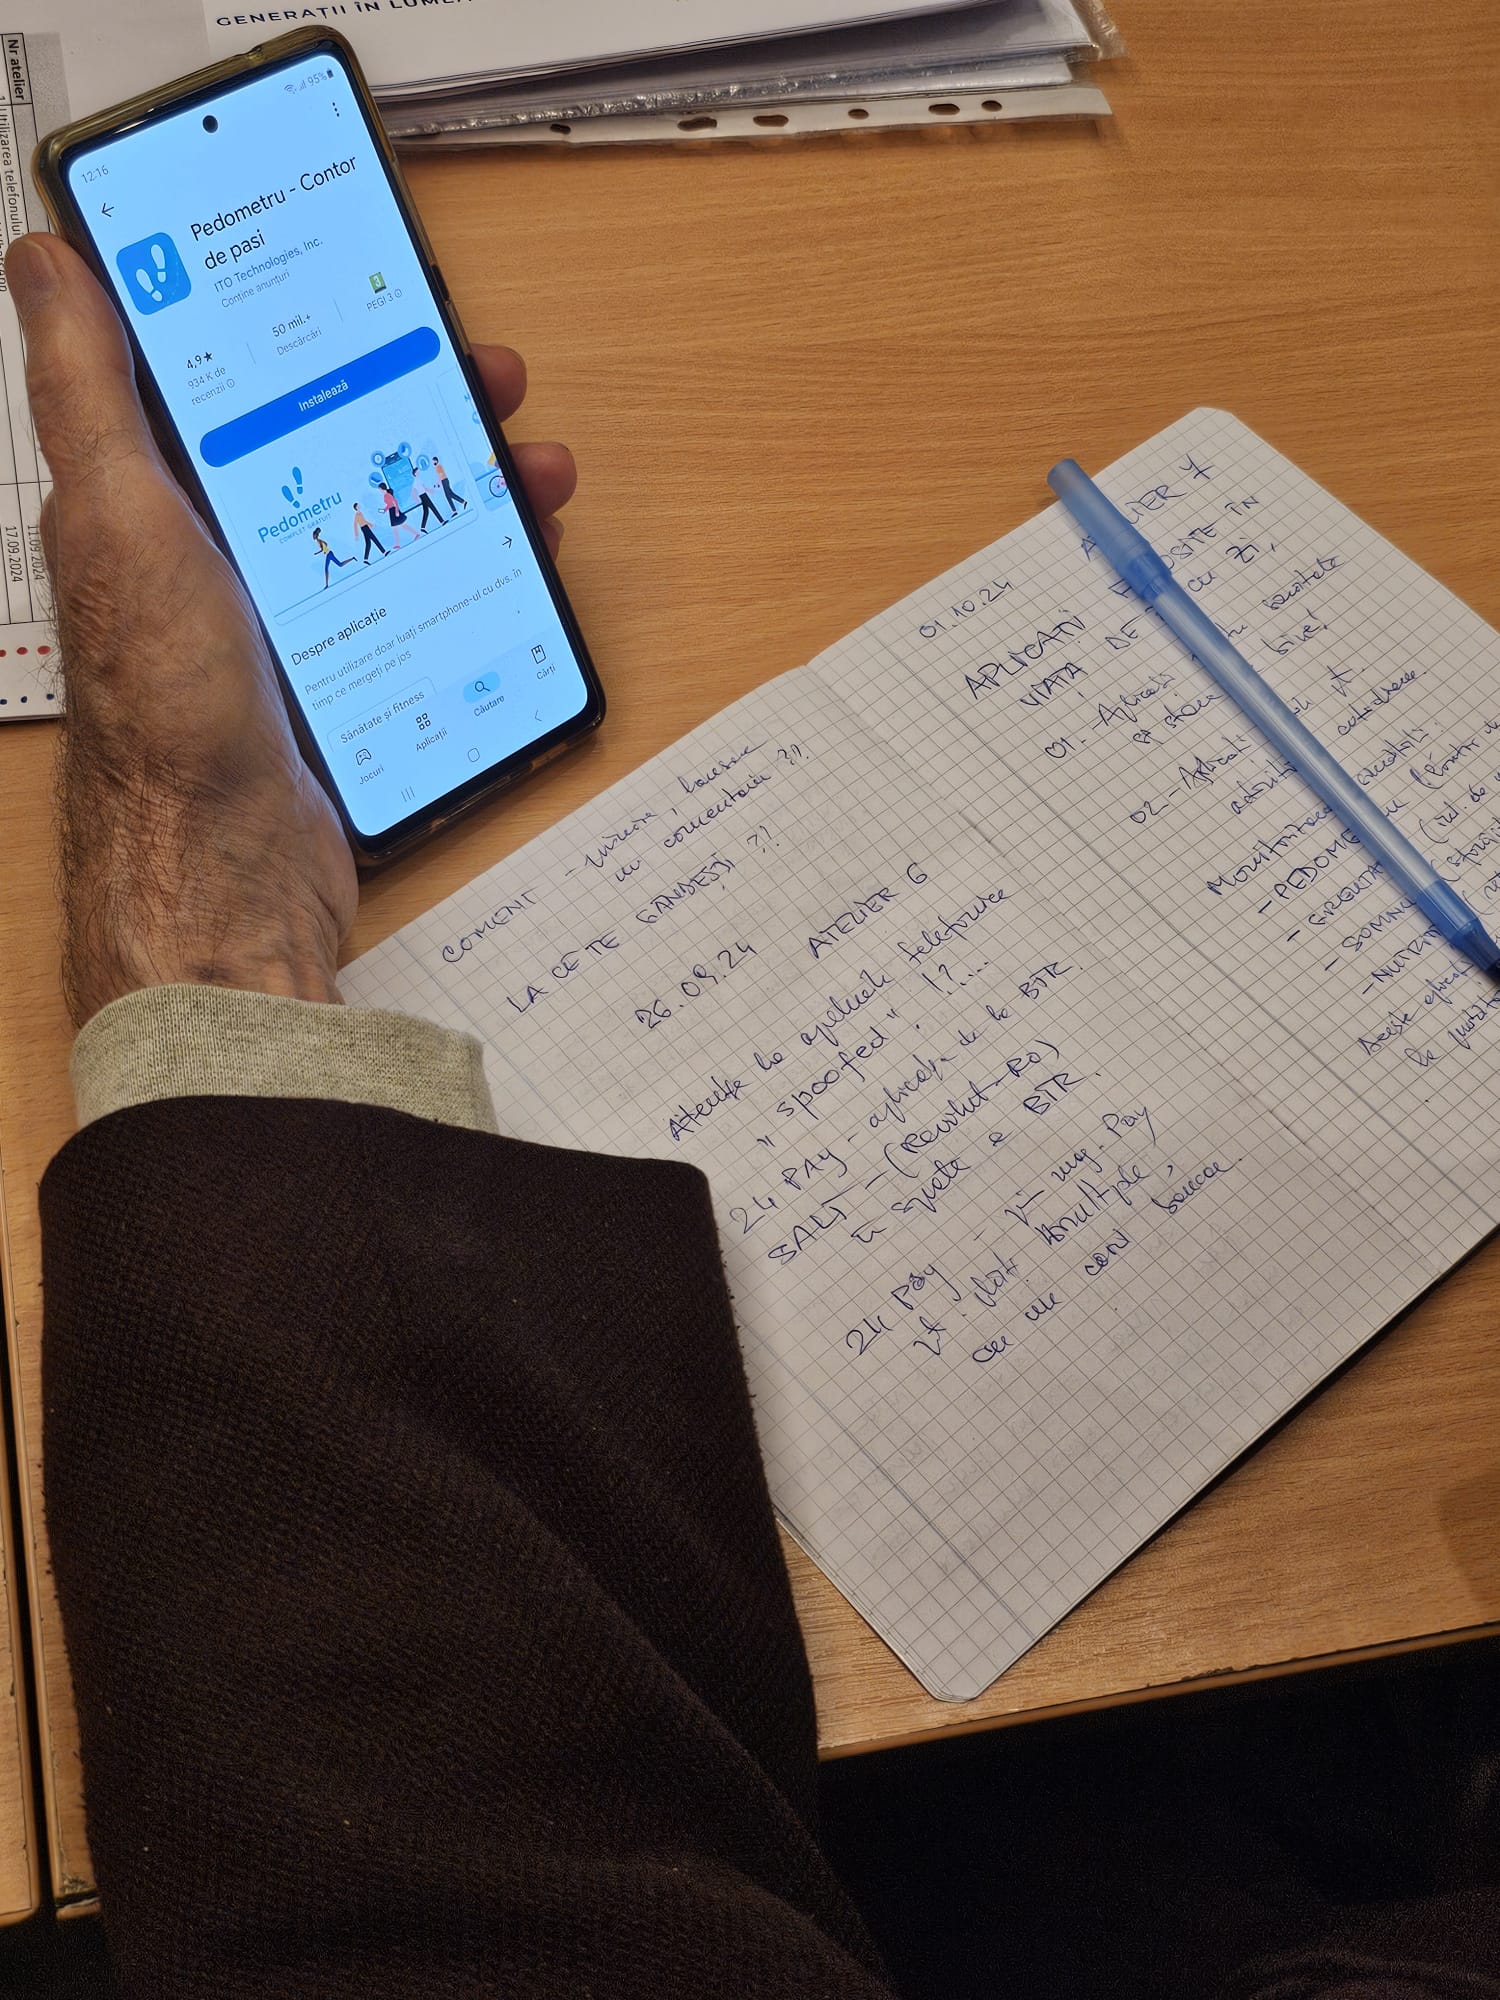 GENERAȚII ÎN LUMEA
Nr atelier
1 Utilizarea telefonului
11.09.2024
17.09.2024
12:16
95%
Pedometru - Contor
de pasi
ITO Technologies, Inc.
Conține anunțuri
4,9★
934 K de
recenzii
50 mil.+
Descărcări
3
PEGI 3
Instalează
Pedometru
COMPLET GRATUIT
Despre aplicație
Pentru utilizare doar luați smartphone-ul cu dvs. în
timp ce mergeți pe jos
Sănătate și fitness
Jocuri
Aplicații
Căutare
Cărți
COMENT -
un comentariu ??
LA CE TE GÂNDEȘTI ??
26.09.24 ATELIER 6
Atenție la apelurile telefonice
"spoofed" !?...
24 PAY - aplicație de la BTR.
SALT - (Revolut-RO)
în spate e BTR.
24 Pay - mag. Pay
vt. plăți multiple,
cu un card bancar.
01.10.24
ATELIER 7
APLICAȚII FOLOSITE ÎN
VIAȚA DE CU ZI,
01. - Aplicații sănătate
și stare bine!
02. - Aplicații vt.
Monitorizarea
- PEDOMETRU
- GREUTATE
- SOMNUL
- NUTRIȚ
Aceste aplicații